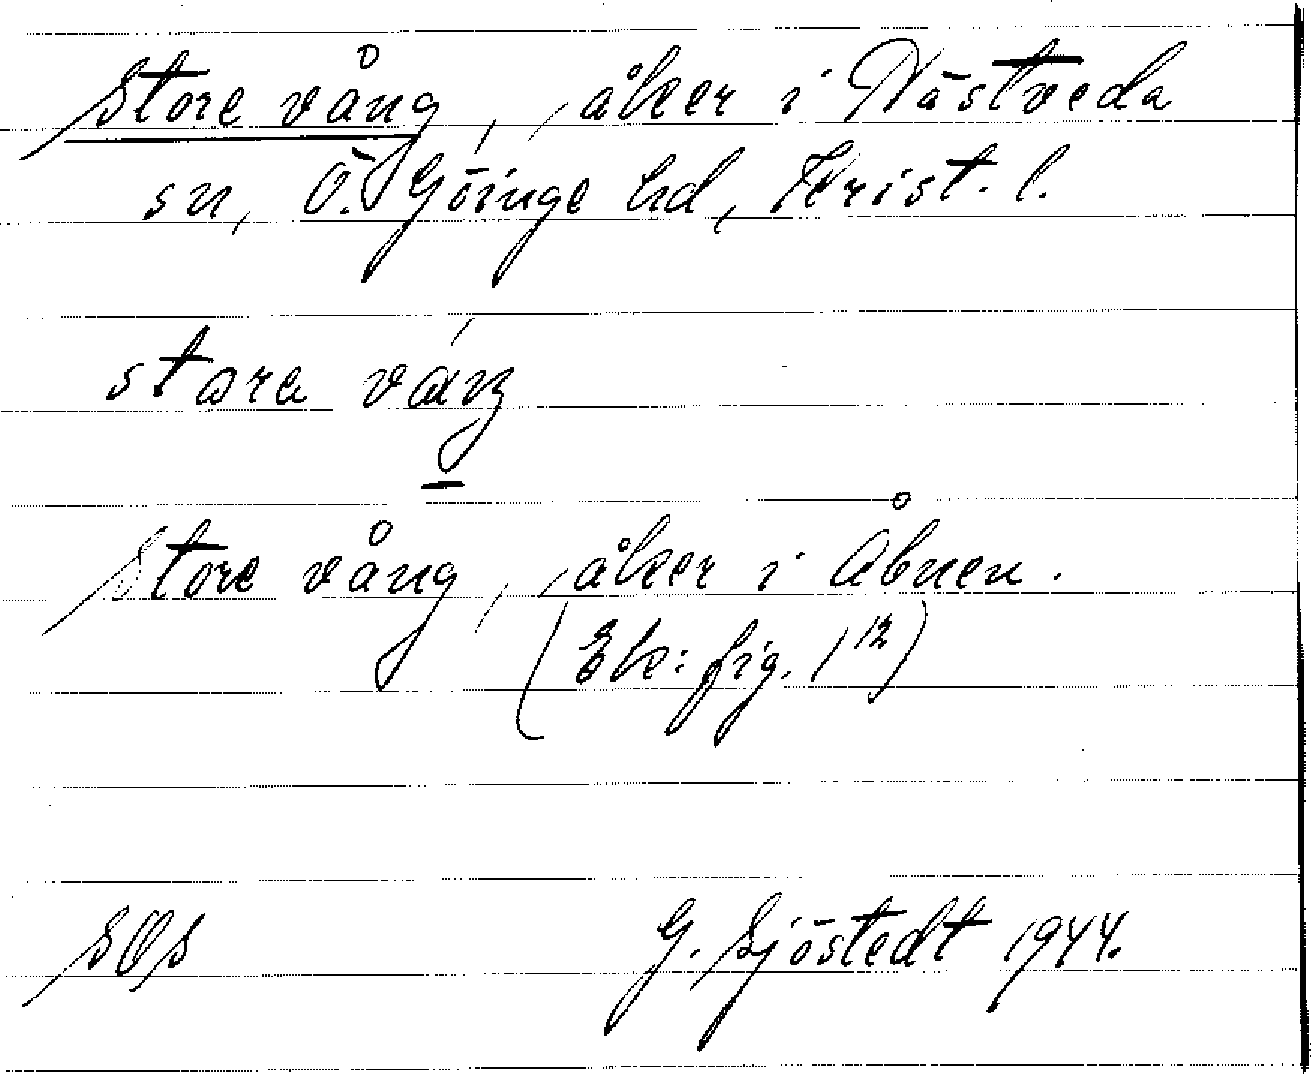 Store vång, åker i Nåstveda
sn, Ö. Göinge hd, Krist. l.
store väŋ
Store vång, åker i Åbnen.
(Ek: fig. 1 12)
SOS G. Sjöstedt 1944.